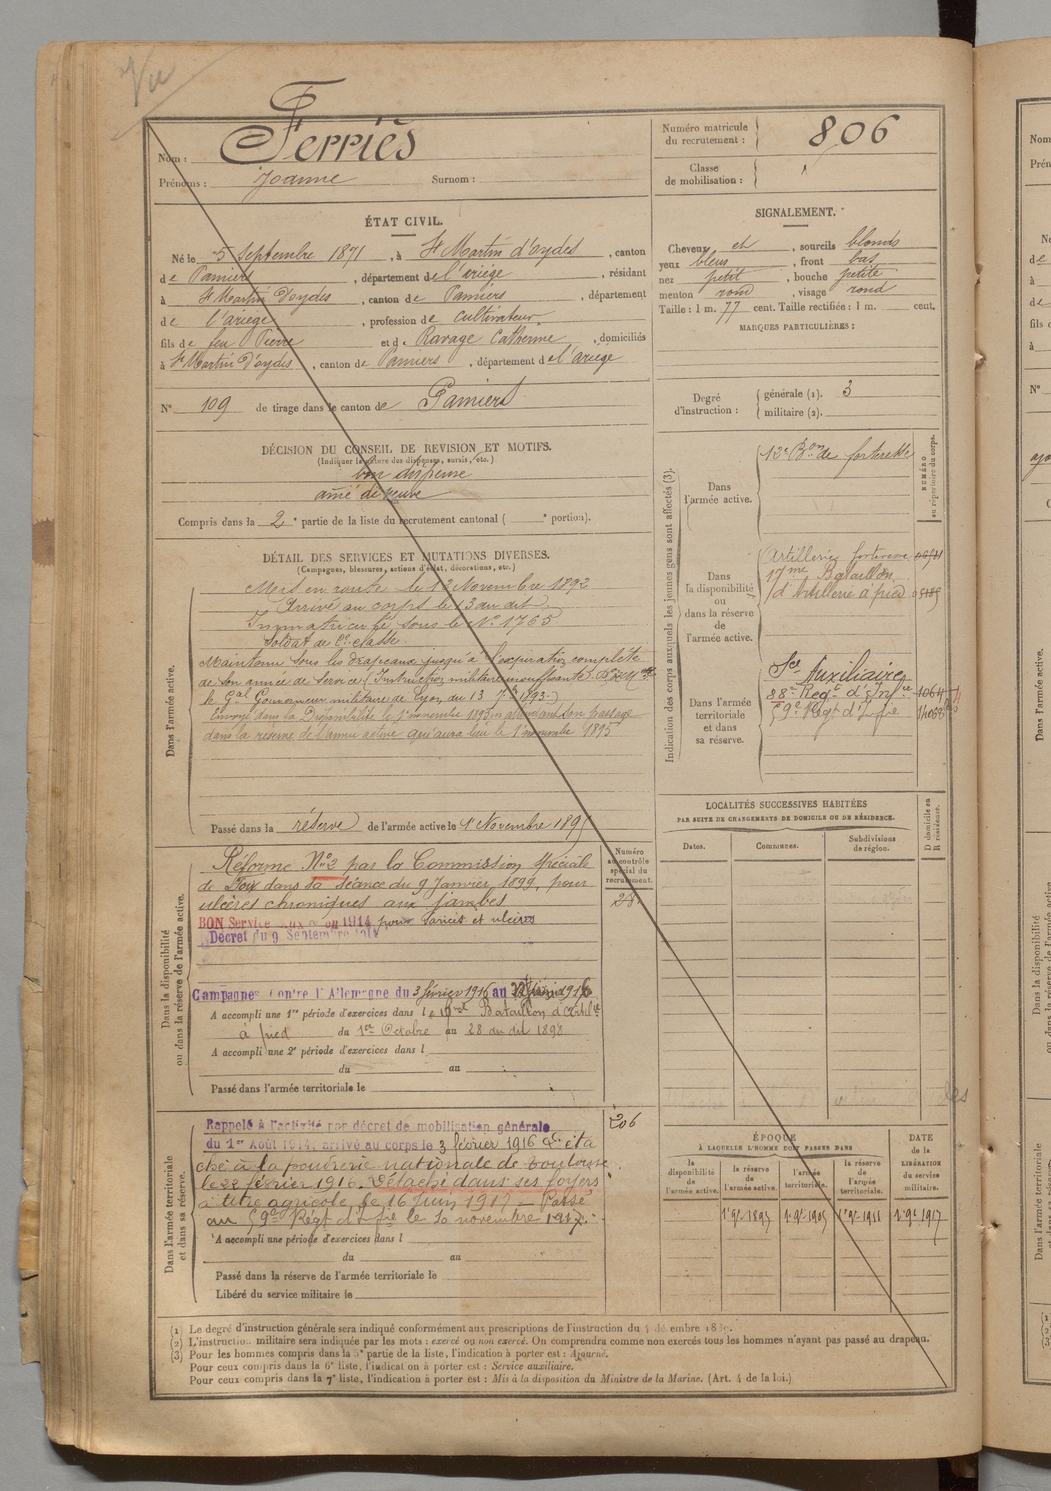 Vu
Nom : Ferriès
Prénoms : Joanne Surnom :
Numéro matricule du recrutement : 806
Classe de mobilisation :
ÉTAT CIVIL.
Né le 5 Septembre 1871, à St Martin d'oydes, canton
de Pamiers, département de l'ariége, résidant
à St Martin d'oydes, canton de Pamiers, département
de l'ariege, profession de cultivateur
fils de feu Pierre et de Ravage Catherine, domiciliés
à St Martin d'oydes, canton de Pamiers, département de l'ariege
N° 109 de tirage dans le canton de Pamiers
SIGNALEMENT.
Cheveux et, sourcils blonds
yeux bleus, front bas
nez petit, bouche petite
menton rond, visage rond
Taille : 1 m. 77 cent. Taille rectifiée : 1 m. cent.
MARQUES PARTICULIÈRES :
Degré d'instruction : générale (1). 3
militaire (2).
DÉCISION DU CONSEIL DE REVISION ET MOTIFS.
(Indiquer la nature des dispenses, sursis, etc.)
bon dispense
aîné de veuve
Compris dans la 2e partie de la liste du recrutement cantonal ( e portion).
DÉTAIL DES SERVICES ET MUTATIONS DIVERSES.
(Campagnes, blessures, actions d'éclat, décorations, etc.)
Dans l'armée active.
Mis en route le 13 Novembre 1892
Arrivé au corps le 13 au dit
Immatriculé sous le N° 1765
Soldat de 2e classe
Maintenu sous les drapeaux jusqu'à l'expiration complète
de son année de service (Instruction militaire insuffisante.
le Gal Gouverneur militaire de Lyon du 13 7bre 1893.)
Envoyé dans la Disponibilité le 1er novembre 1893 en attendant son passage
dans la réserve de l'armée active qui aura lieu le 1er novembre 1895
Passé dans la réserve de l'armée active le 1er Novembre 1895
Dans la disponibilité ou dans la réserve de l'armée active.
Réformé N° 2 par la Commission Spéciale
de Foix dans sa séance du 9 Janvier, 1899, pour
ulcères chroniques aux jambes
BON Service 1914 pour varices et ulcères
Décret du 9 Septembre 1914
Campagne Contre l'Allemagne du 3 février 1916 au
A accompli une 1re période d'exercices dans le Bataillon d'Artillie
à pied du 1er Octobre au 28 du dit 1898
A accompli une 2e période d'exercices dans l
du au
Passé dans l'armée territoriale le
Numéro au contrôle spécial du recrutement.
206
Dans l'armée territoriale et dans sa réserve.
Rappelé à l'activité par décret de mobilisation générale
du 1er Août 1914, arrivé au corps le 3 février 1916 Déta
ché à la poudrerie nationale de Toulouse
le 22 février 1916. Détaché dans ses foyers
à titre agricole le 16 Juin 1917 — Passé
au 59e Régt d'Ifie le 30 novembre 1917.
A accompli une période d'exercices dans l
du au
Passé dans la réserve de l'armée territoriale le
Libéré du service militaire le
Indication des corps auxquels les jeunes gens sont affectés (3).
NUMÉRO au répertoire du corps.
Dans l'armée active.
12e Bon de forteresse
Dans la disponibilité ou dans la réserve de l'armée active.
Artillerie forteresse
17me Bataillon
d'Artillerie à pied
Dans l'armée territoriale et dans sa réserve.
Sce Auxiliaire
88e Regt d'Infie
59e Régt d'Ifie
LOCALITÉS SUCCESSIVES HABITÉES
PAR SUITE DE CHANGEMENTS DE DOMICILE OU DE RÉSIDENCE.
Dates. Communes. Subdivisions de région. D domicile ou R résidence.
ÉPOQUE
À LAQUELLE L'HOMME DOIT PASSER DANS
DATE de la LIBÉRATION du service militaire.
la disponibilité de l'armée active. la réserve de l'armée active. l'armée territoriale. la réserve de l'armée territoriale.
1er 9bre 1895 1er 9bre 1905 1er 9bre 1911 1er 9bre 1917
(1) Le degré d'instruction générale sera indiqué conformément aux prescriptions de l'instruction du 4 décembre
(2) L'instruction militaire sera indiquée par les mots : exercé ou non exercé. On comprendra comme non exercés tous les hommes n'ayant pas passé au drapeau.
(3) Pour les hommes compris dans la 5e partie de la liste, l'indication à porter est : Ajourné.
Pour ceux compris dans la 6e liste, l'indication à porter est : Service auxiliaire.
Pour ceux compris dans la 7e liste, l'indication à porter est : Mis à la disposition du Ministre de la Marine. (Art. 4 de la loi.)